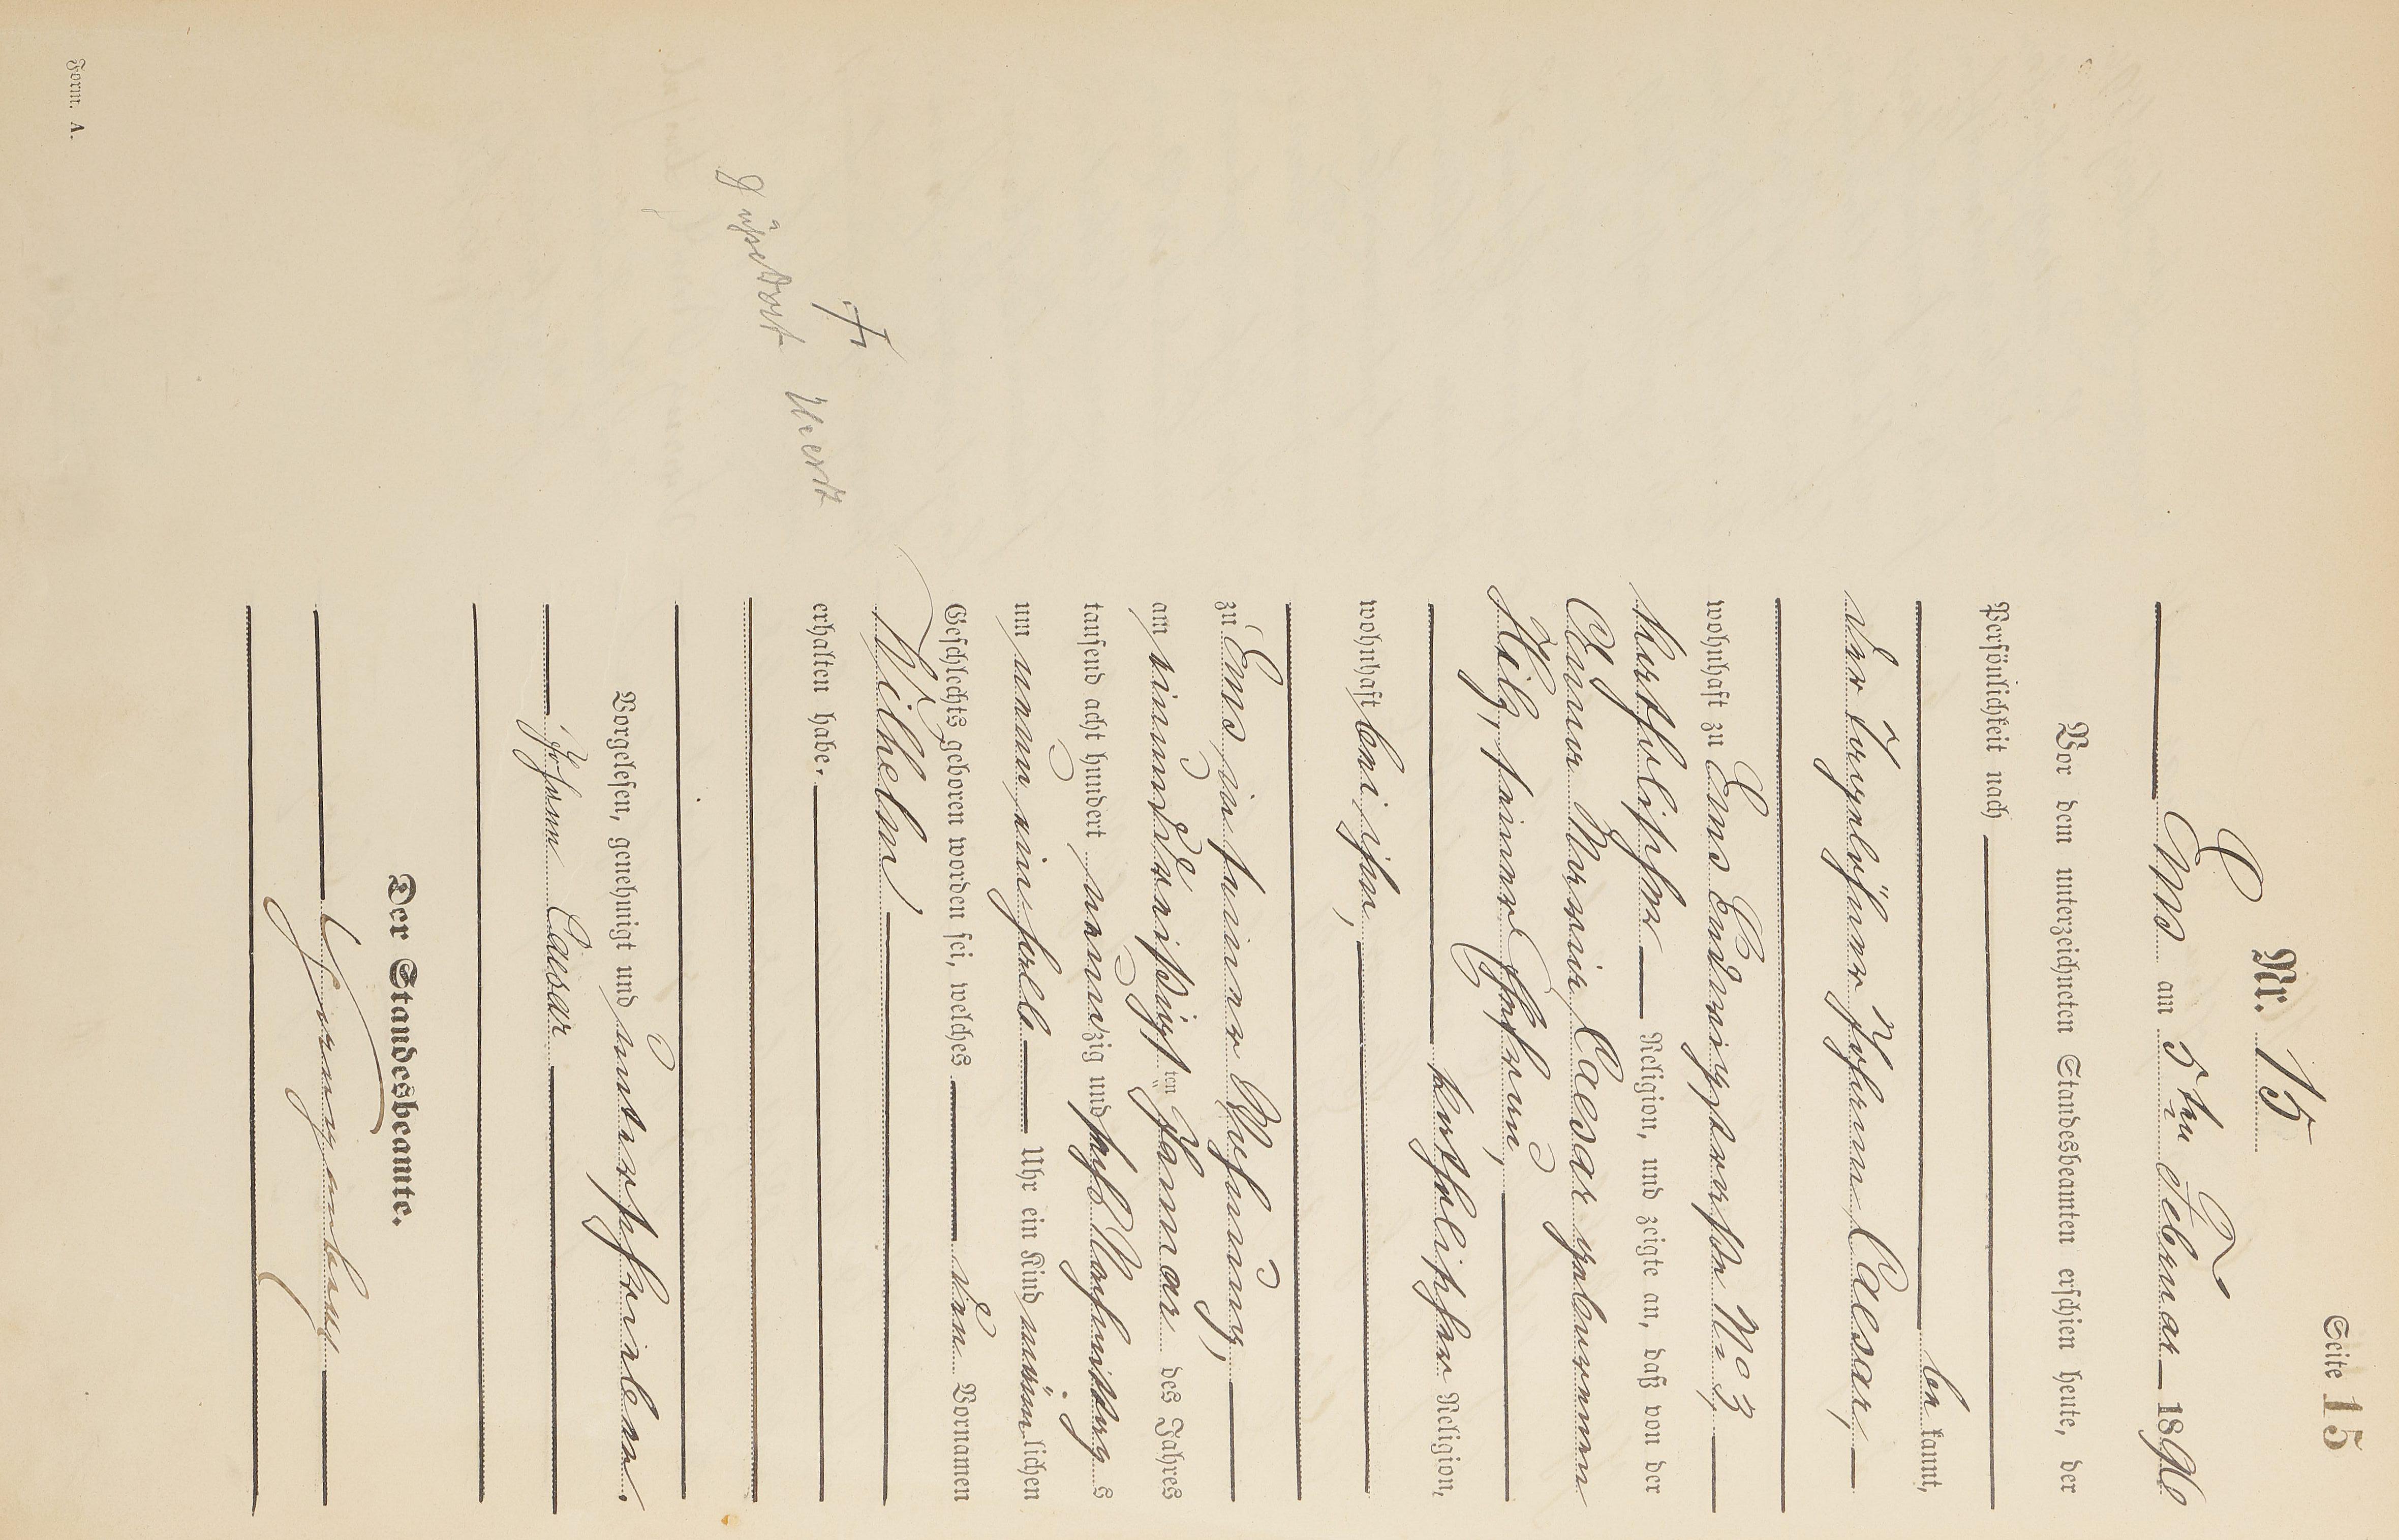 Seite 15
Nr. 15
C
Ems am 5ten Februar 1896
Vor dem unterzeichneten Standesbeamten erschien heute, der
Persönlichkeit nach
be kannt,
der Tagelöhner Johann Caesar,
wohnhaft zu Ems
katholischer Religion, und zeigte an, daß von der
Anna Maria Caesar geborenen
Hilg, seiner Ehefrau,
katholischer Religion,
wohnhaft bei ihm,
zu Ems in seiner Wohnung,
am einunddreißigsten Januar des Jahres
tausend acht hundert neunzig und sechs Nachmittags
um neun ein halb Uhr ein Kind männlichen
Geschlechts geboren worden sei, welches den Vornamen
Wilhelm
erhalten habe.
Vorgelesen, genehmigt und unterschrieben
Johann Caesar
Der Standesbeamte.
Form. A.